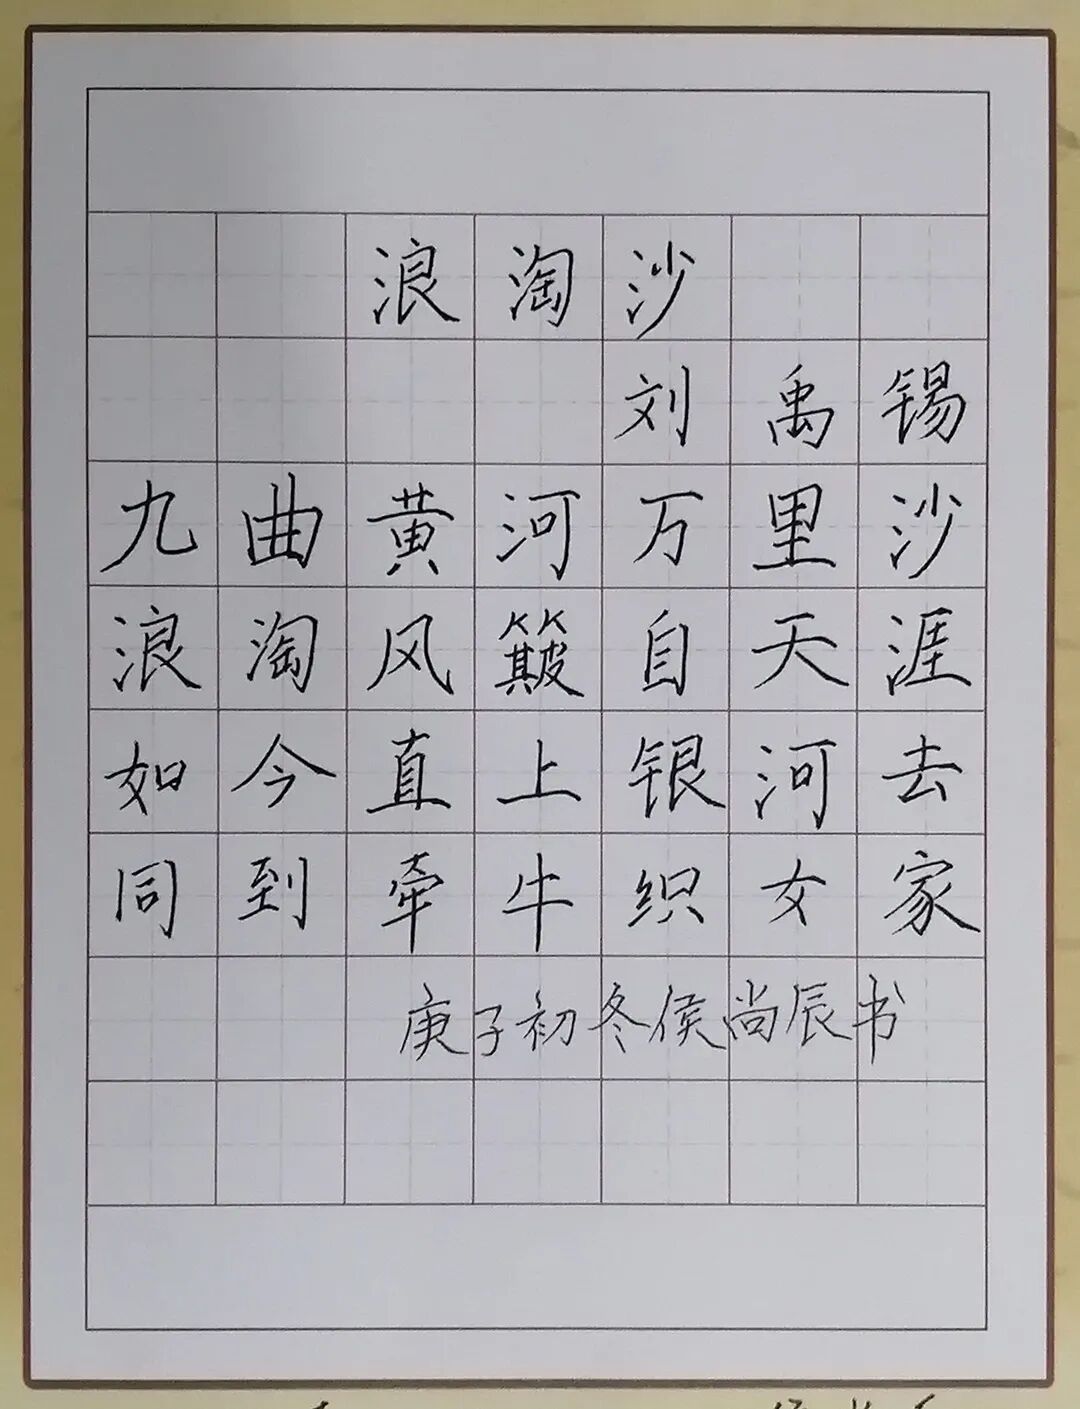 浪淘沙
刘禹锡
九曲黄河万里沙
浪淘风簸自天涯
如今直上银河去
同到牵牛织女家
庚子初冬侯尚辰书